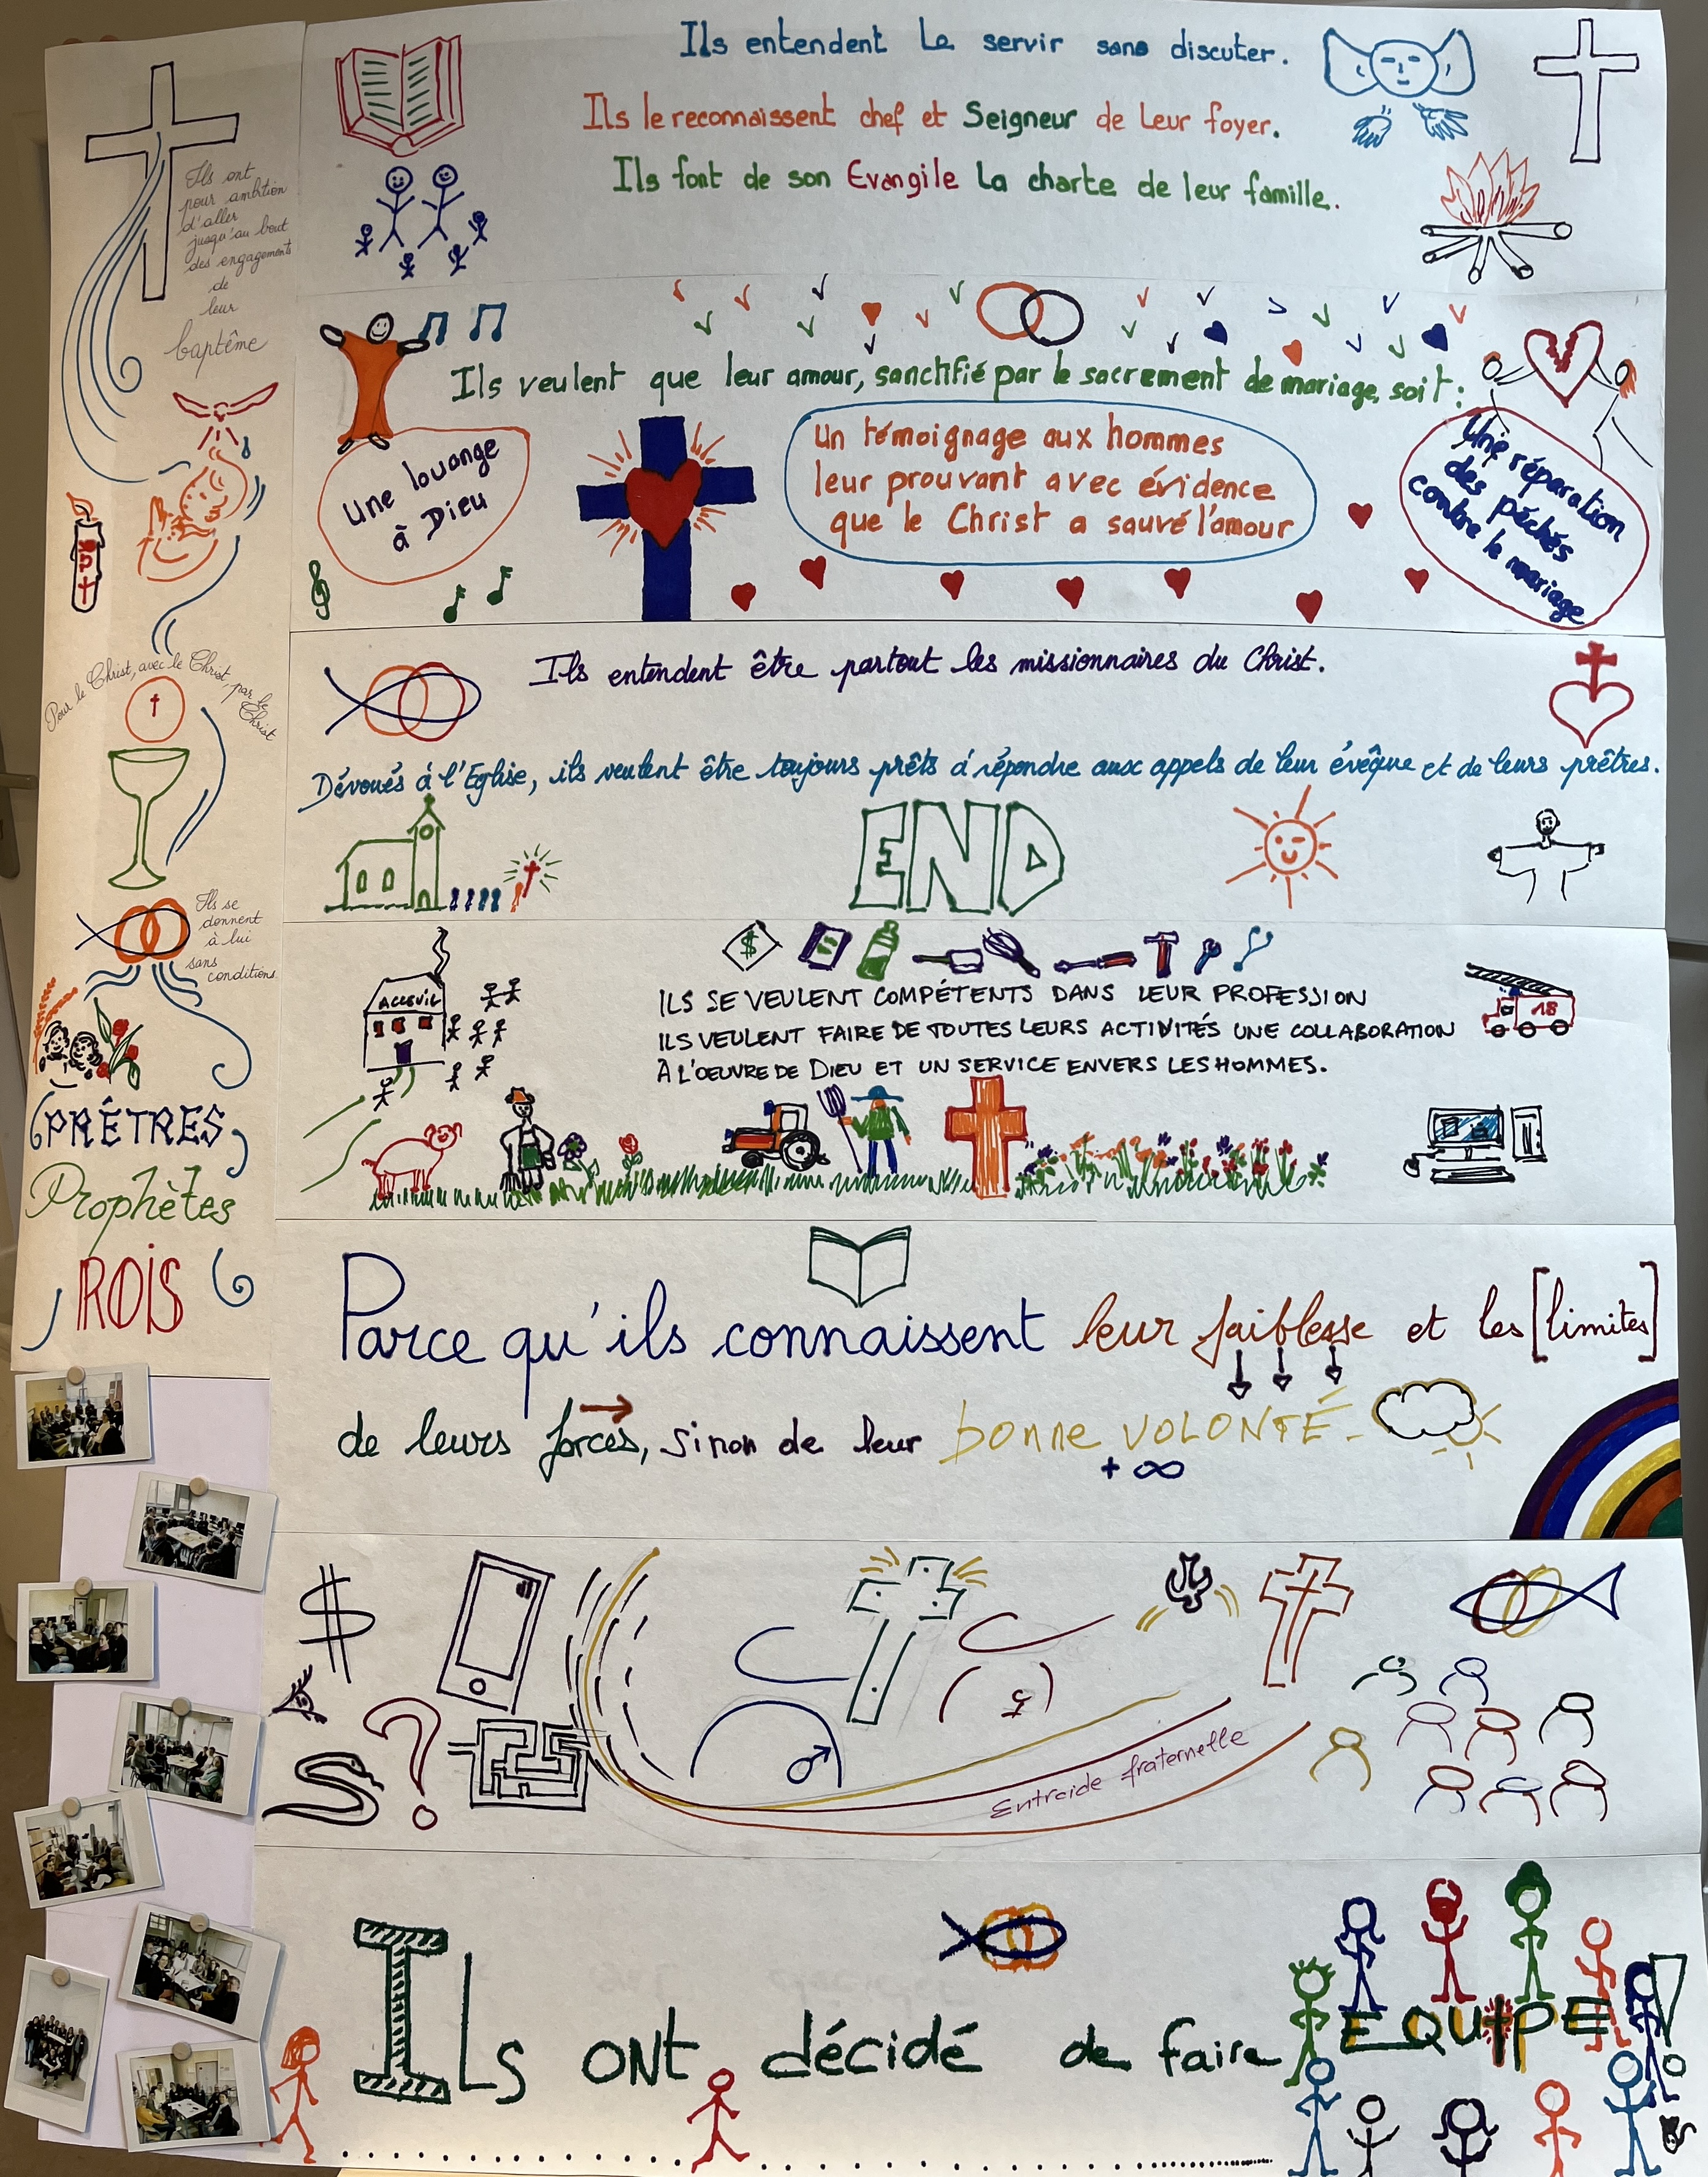 Ils ont
pour ambition
d'aller
jusqu'au bout
des engagements
de
leur
baptême
Pour le Christ, avec le Christ, par le Christ
Ils se
donnent
à lui
sans
conditions.
PRÊTRES
Prophètes
ROIS
Ils entendent Le servir sans discuter.
Ils le reconnaissent chef et Seigneur de Leur foyer.
Ils font de son Evangile La charte de leur famille.
Ils veulent que leur amour, sanctifié par le sacrement de mariage, soit :
Une louange
à Dieu
un témoignage aux hommes
leur prouvant avec évidence
que le Christ a sauvé l'amour
Une réparation
des péchés
contre le mariage
Ils entendent être partout les missionnaires du Christ.
Dévoués à l'Eglise, ils veulent être toujours prêts à répondre aux appels de leur évêque et de leurs prêtres.
END
$
ACCEUIL
ILS SE VEULENT COMPÉTENTS DANS LEUR PROFESSION
ILS VEULENT FAIRE DE TOUTES LEURS ACTIVITÉS UNE COLLABORATION
À L'OEUVRE DE DIEU ET UN SERVICE ENVERS LES HOMMES.
18
Parce qu'ils connaissent leur faiblesse et les [limites]
de leurs forces, sinon de leur bonne VOLONTÉ.
+ ∞
$
?
♂
Entraide fraternelle
Ils ONT décidé de faire EQUIPE !